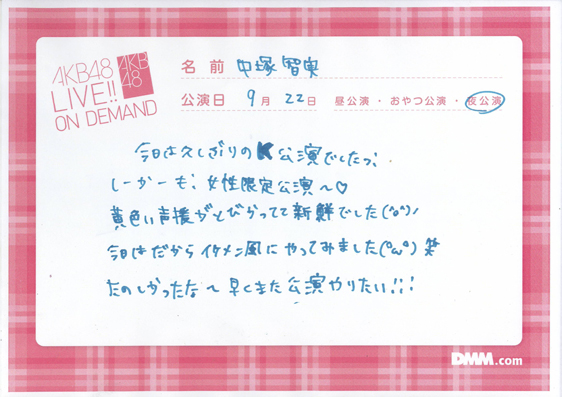 AKB48
LIVE!!
ON DEMAND
AKB
48
名前 中塚智実
公演日 9月 22日 昼公演・おやつ公演・夜公演
今日は久しぶりのK公演でしたっ、
しーかーも、女性限定公演〜♡
黄色い声援がとびかってて新鮮でした(^o^)ノ
今日はだからイケメン風にやってみました(°ω°) 笑
たのしかったな〜早くまた公演やりたい!!!
DMM.com